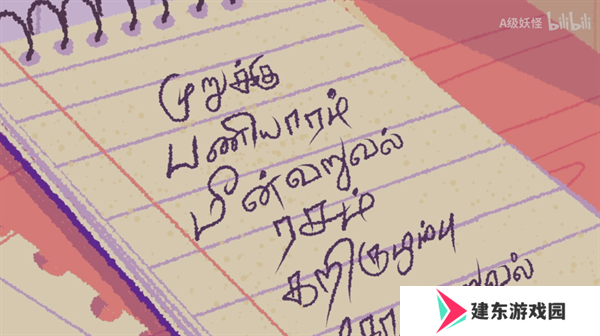 A级妖怪 bilibili
முறுக்கு
பணியாரம்
மீன்வறுவல்
ரசம்
கறிகுழம்பு
建东游戏园